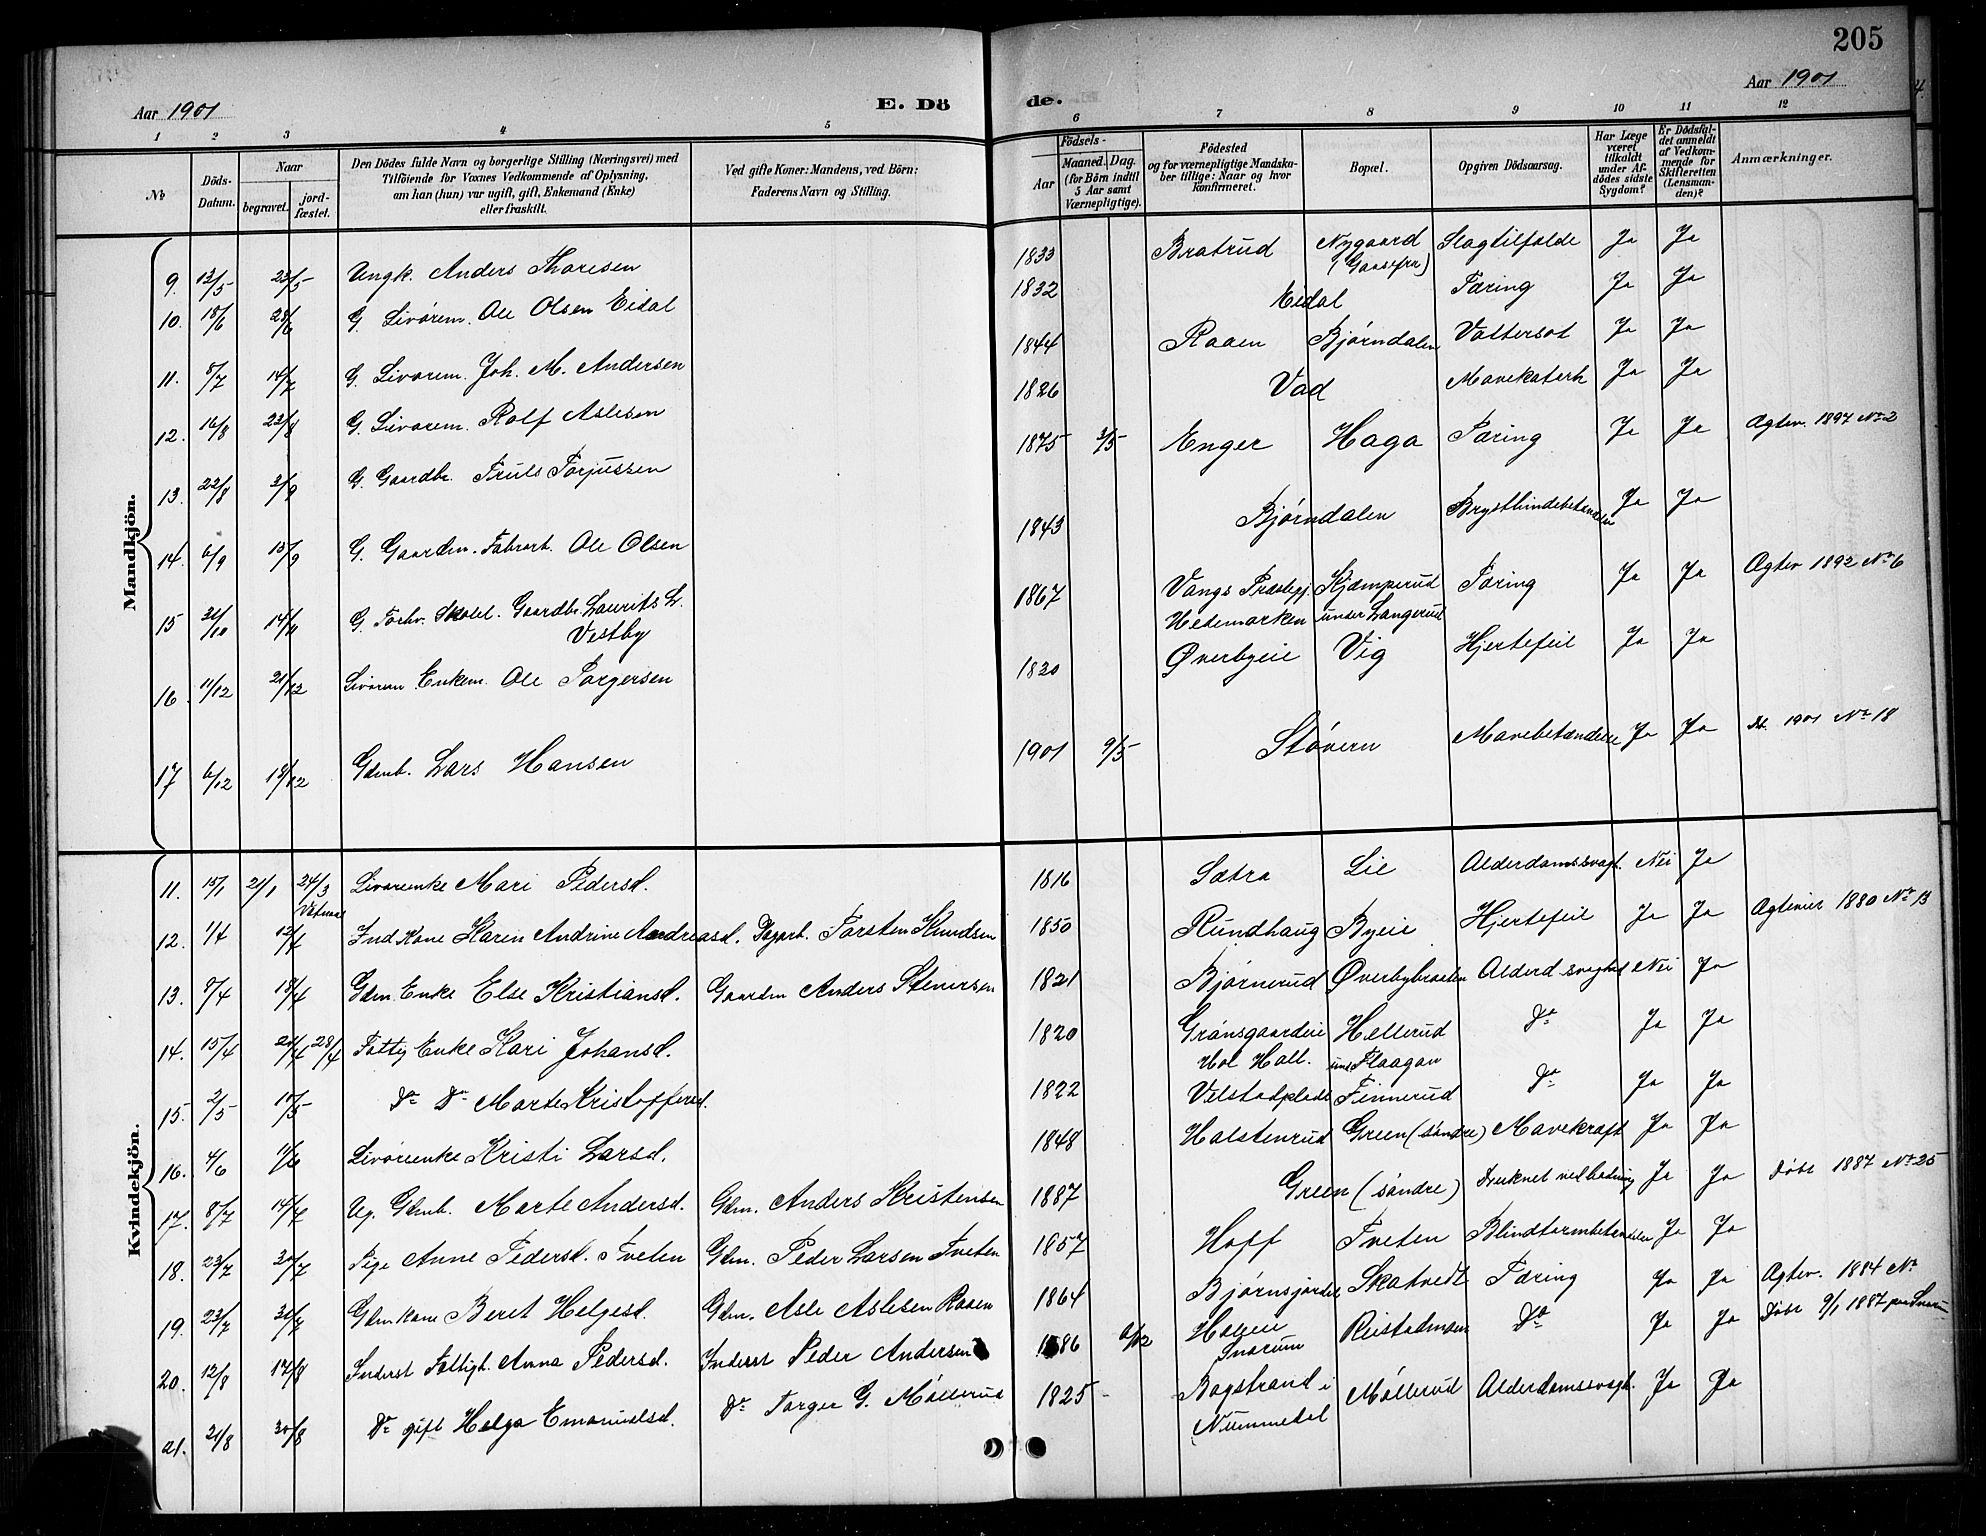 205
Aar 1901
E. Döde.
Aar 1901
1 2 3 4 5 6 7 8 9 10 11 12
No
Döds-Datum.
Naar
begravet.
jord-fæstet.
Den Dödes fulde Navn og borgerlige Stilling (Næringsvei) med
Tilföiende for Voxnes Vedkommende af Oplysning,
om han (hun) var ugift, gift, Enkemand (Enke)
eller fraskilt.
Ved gifte Koner: Mandens, ved Börn:
Faderens Navn og Stilling.
Födsels-
Aar
Maaned. Dag.
(for Börn indtil
5 Aar samt
Værnepligtige).
Födested
og for værnepligtige Mandska-
ber tillige: Naar og hvor
konfirmeret.
Bopæl.
Opgiven Dödsaarsag.
Har Læge
været
tilkaldt
under Af-
dödes sidste
Sygdom?
Er Dödsfal-
det anmeldt
af Vedkom-
mende for
Skifteretten
(Lensman-
den)?
Anmærkninger.
Mandkjön.
9. 12/5 23/5 Ungk. Anders Thoresen 1833 Bratrud Nygaard (Gaasefra) Slagtilfælde Ja Ja
10. 18/6 28/6 G. Livørem. Ole Olsen Eidal 1832 Eidal Tæring Ja Ja
11. 8/7 14/7 G. Livørem. Joh. M. Andersen 1844 Raaen Bjørndalen Vattersot Ja Ja
12. 16/8 22/8 G. Livørem. Rolf Aslesen 1826 Vad Mavekatarh Ja Ja
13. 22/8 2/9 G. Gaardbr. Truls Torjussen 1875 3/5 Enger Haga Tæring Ja Ja Ægtev. 1897 No 2
14. 6/9 15/9 G. Gaardm. Fabrarb. Ole Olsen 1843 Bjørndalen Brysthindebetændelse Ja Ja
15 31/10 14/11 G. Forhv. Skolel. Gaardbr. Laurits L. Vestby 1867 Vangs Præstegj. Hedemarken Kjæmperud under Langerud Tæring Ja Ja Ægtev 1892 No 6
16 11/12 21/12 Livørem Enkem. Ole Torgersen 1820 Øverbyeie Vig Hjertefeil Ja Ja
17 6/12 13/12 Gdmb. Lars Hansen 1901 9/5 Støvern Mavebetændelse Ja Ja Db. 1901 No 18
Kvindekjön.
11. 15/1 21/1 24/3 Livøreenke Mari Pedersd. 1816 Sætra Lie Alderdomssvagh. Nei Ja
12. 1/4 12/4 Ind Kone Karen Andrine Andreasd. Dagarb. Torsten Knudsen 1850 Rundhaug Byeie Hjertefeil Ja Ja Ægteviet 1880 No 13
13. 8/4 18/4 Gdm. Enke Else Kristiansd. Gaardm Anders Stenersen 1821 Bjørnerud Øverbybraaten Alderd.svaghed Nei Ja
14. 15/4 21/4 28/4 Fattig Enke Kari Johansd. 1820 Grønsgaardeie Hol Hall. Hellerud und Flaagan Do Ja Ja
15. 2/5 10/5 Do Do Marte Kristoffersd. 1822 Velstadplads Finnerud Do Ja Ja
16. 4/6 11/6 Livøreenke Kristi Larsd. 1848 Halstenrud Green (søndre) Mavekræft Ja Ja
17. 8/7 14/7 Ug. Gdmb. Marte Andersd. Gdm. Anders Kristensen 1887 Green (søndre) Druknet ved badning Ja Ja Døbt 1887 No 25
18. 23/7 30/7 Pige Anne Pedersd. Tveten Gdm. Peder Larsen Tveten 1857 Hoff Tveten Blindtarmbetændelse Ja Ja
19. 23/7 30/7 Gdm kone Beret Helgesd. Gdm. Asle Aslesen Raaen 1864 Bjørnsjordet Skatvedt Tæring Ja Ja Ægtev. 1884 No
20. 12/8 17/8 Inderst Fattigl. Anna Pedersd. Inderst Peder Andersen 1886 6/12 Holeie Snarum Reistadmoen Do Ja Ja Døbt 9/1 1887 paa Snarum
21. 21/8 30/8 Do gift Helga Emanuelsd. Do Torger G. Møllerud 1825 Bogstrand i Nummedal Møllerud Alderdomssvagh. Ja Ja